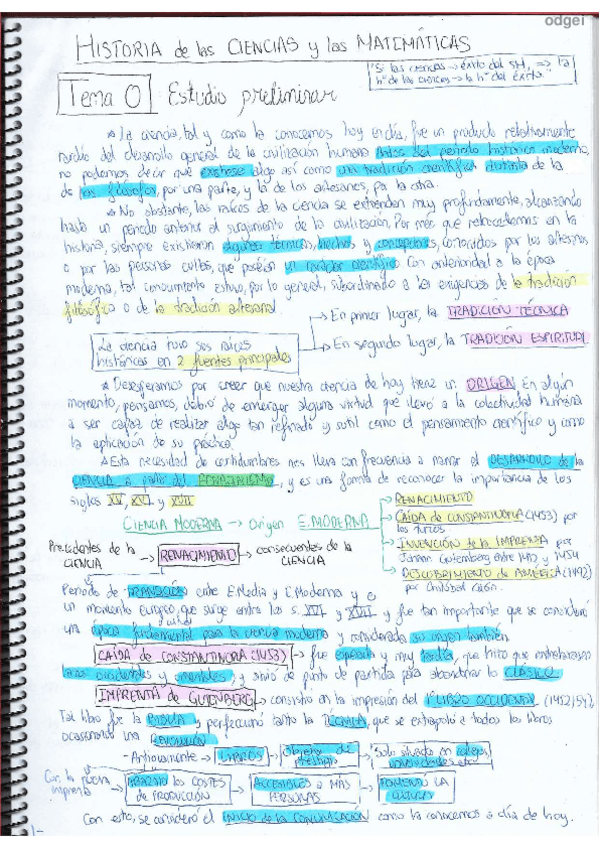 odgei
HISTORIA de las CIENCIAS y las MATEMÁTICAS
"Si las ciencias → éxito del SH, ⇒ la
hª de las ciencias → la hª del éxito."
Tema 0 Estudio preliminar
* La ciencia, tal y como la conocemos hoy en día, fue un producto relativamente
tardío del desarrollo general de la civilización humana. Antes del periodo histórico moderno,
no podemos decir que existiese algo así como una tradición científica distinta de la
de los filósofos, por una parte, y la de los artesanos, por la otra.
* No obstante, las raíces de la ciencia se extienden muy profundamente, alcanzando
hasta un periodo anterior al surgimiento de la civilización. Por más que retrocedamos en la
historia, siempre existieron algunas técnicas, hechos y concepciones, conocidos por los artesanos
o por las personas cultas, que poseían un carácter científico. Con anterioridad a la época
moderna, tal conocimiento estuvo, por lo general, subordinado a las exigencias de la tradición
filosófico o de la tradición artesanal.
→ En primer lugar, la TRADICIÓN TÉCNICA
La ciencia tuvo sus raíces
históricas en 2 fuentes principales
→ En segundo lugar, la TRADICIÓN ESPIRITUAL
* Desesperamos por creer que nuestra ciencia de hoy tiene un ORIGEN. En algún
momento, pensamos, debió de emerger alguna virtud que llevó a la colectividad humana
a ser capaz de realizar algo tan refinado y sutil como el pensamiento científico y como
la aplicación de su práctica.
* Esta necesidad de certidumbres nos lleva con frecuencia a narrar el DESARROLLO de la
CIENCIA a partir del RENACIMIENTO, y es una forma de reconocer la importancia de los
siglos XV, XVI y XVII
CIENCIA MODERNA → Origen E. MODERNA
→ RENACIMIENTO
→ CAÍDA de CONSTANTINOPLA (1453) por
los turcos.
→ INVENCIÓN de la IMPRENTA por
Johann Gutemberg entre 1440 y 1454
→ DESCUBRIMIENTO de AMÉRICA (1492)
por Cristóbal Colón.
Precedentes de la
CIENCIA → RENACIMIENTO → consecuentes de la
CIENCIA
Periodo de TRANSICIÓN entre E. Media y E. Moderna y
un momento Europeo, que surge entre los s. XVI y XVII y fue tan importante que se consideró
una época fundamental para la ciencia moderna y considerada su origen también.
CAÍDA de CONSTANTINOPLA (1453) → fue y muy tardía, que hizo que entrelazaran
lazos occidentales y orientales, y sirvió de punto de partida para abandonar lo CLÁSICO.
IMPRENTA DE GUTENBERG → consistió en la impresión del 1º LIBRO OCCIDENTAL (1452/54).
Tal libro fue la BIBLIA y perfeccionó tanto la TÉCNICA, que se extrapoló a todos los libros
ocasionando una REVOLUCIÓN
- Antiguamente → LIBROS → Objetos de
prestigio → Solo situado en colegios,
universidades, etc.
Con la nueva
imprenta → ABARATÓ los COSTES
de PRODUCCIÓN → ACCESIBLES a MÁS
PERSONAS → FOMENTÓ LA
CULTURA
Con esto, se consideró el INICIO de la COMUNICACIÓN como la conocemos a día de hoy.
1-